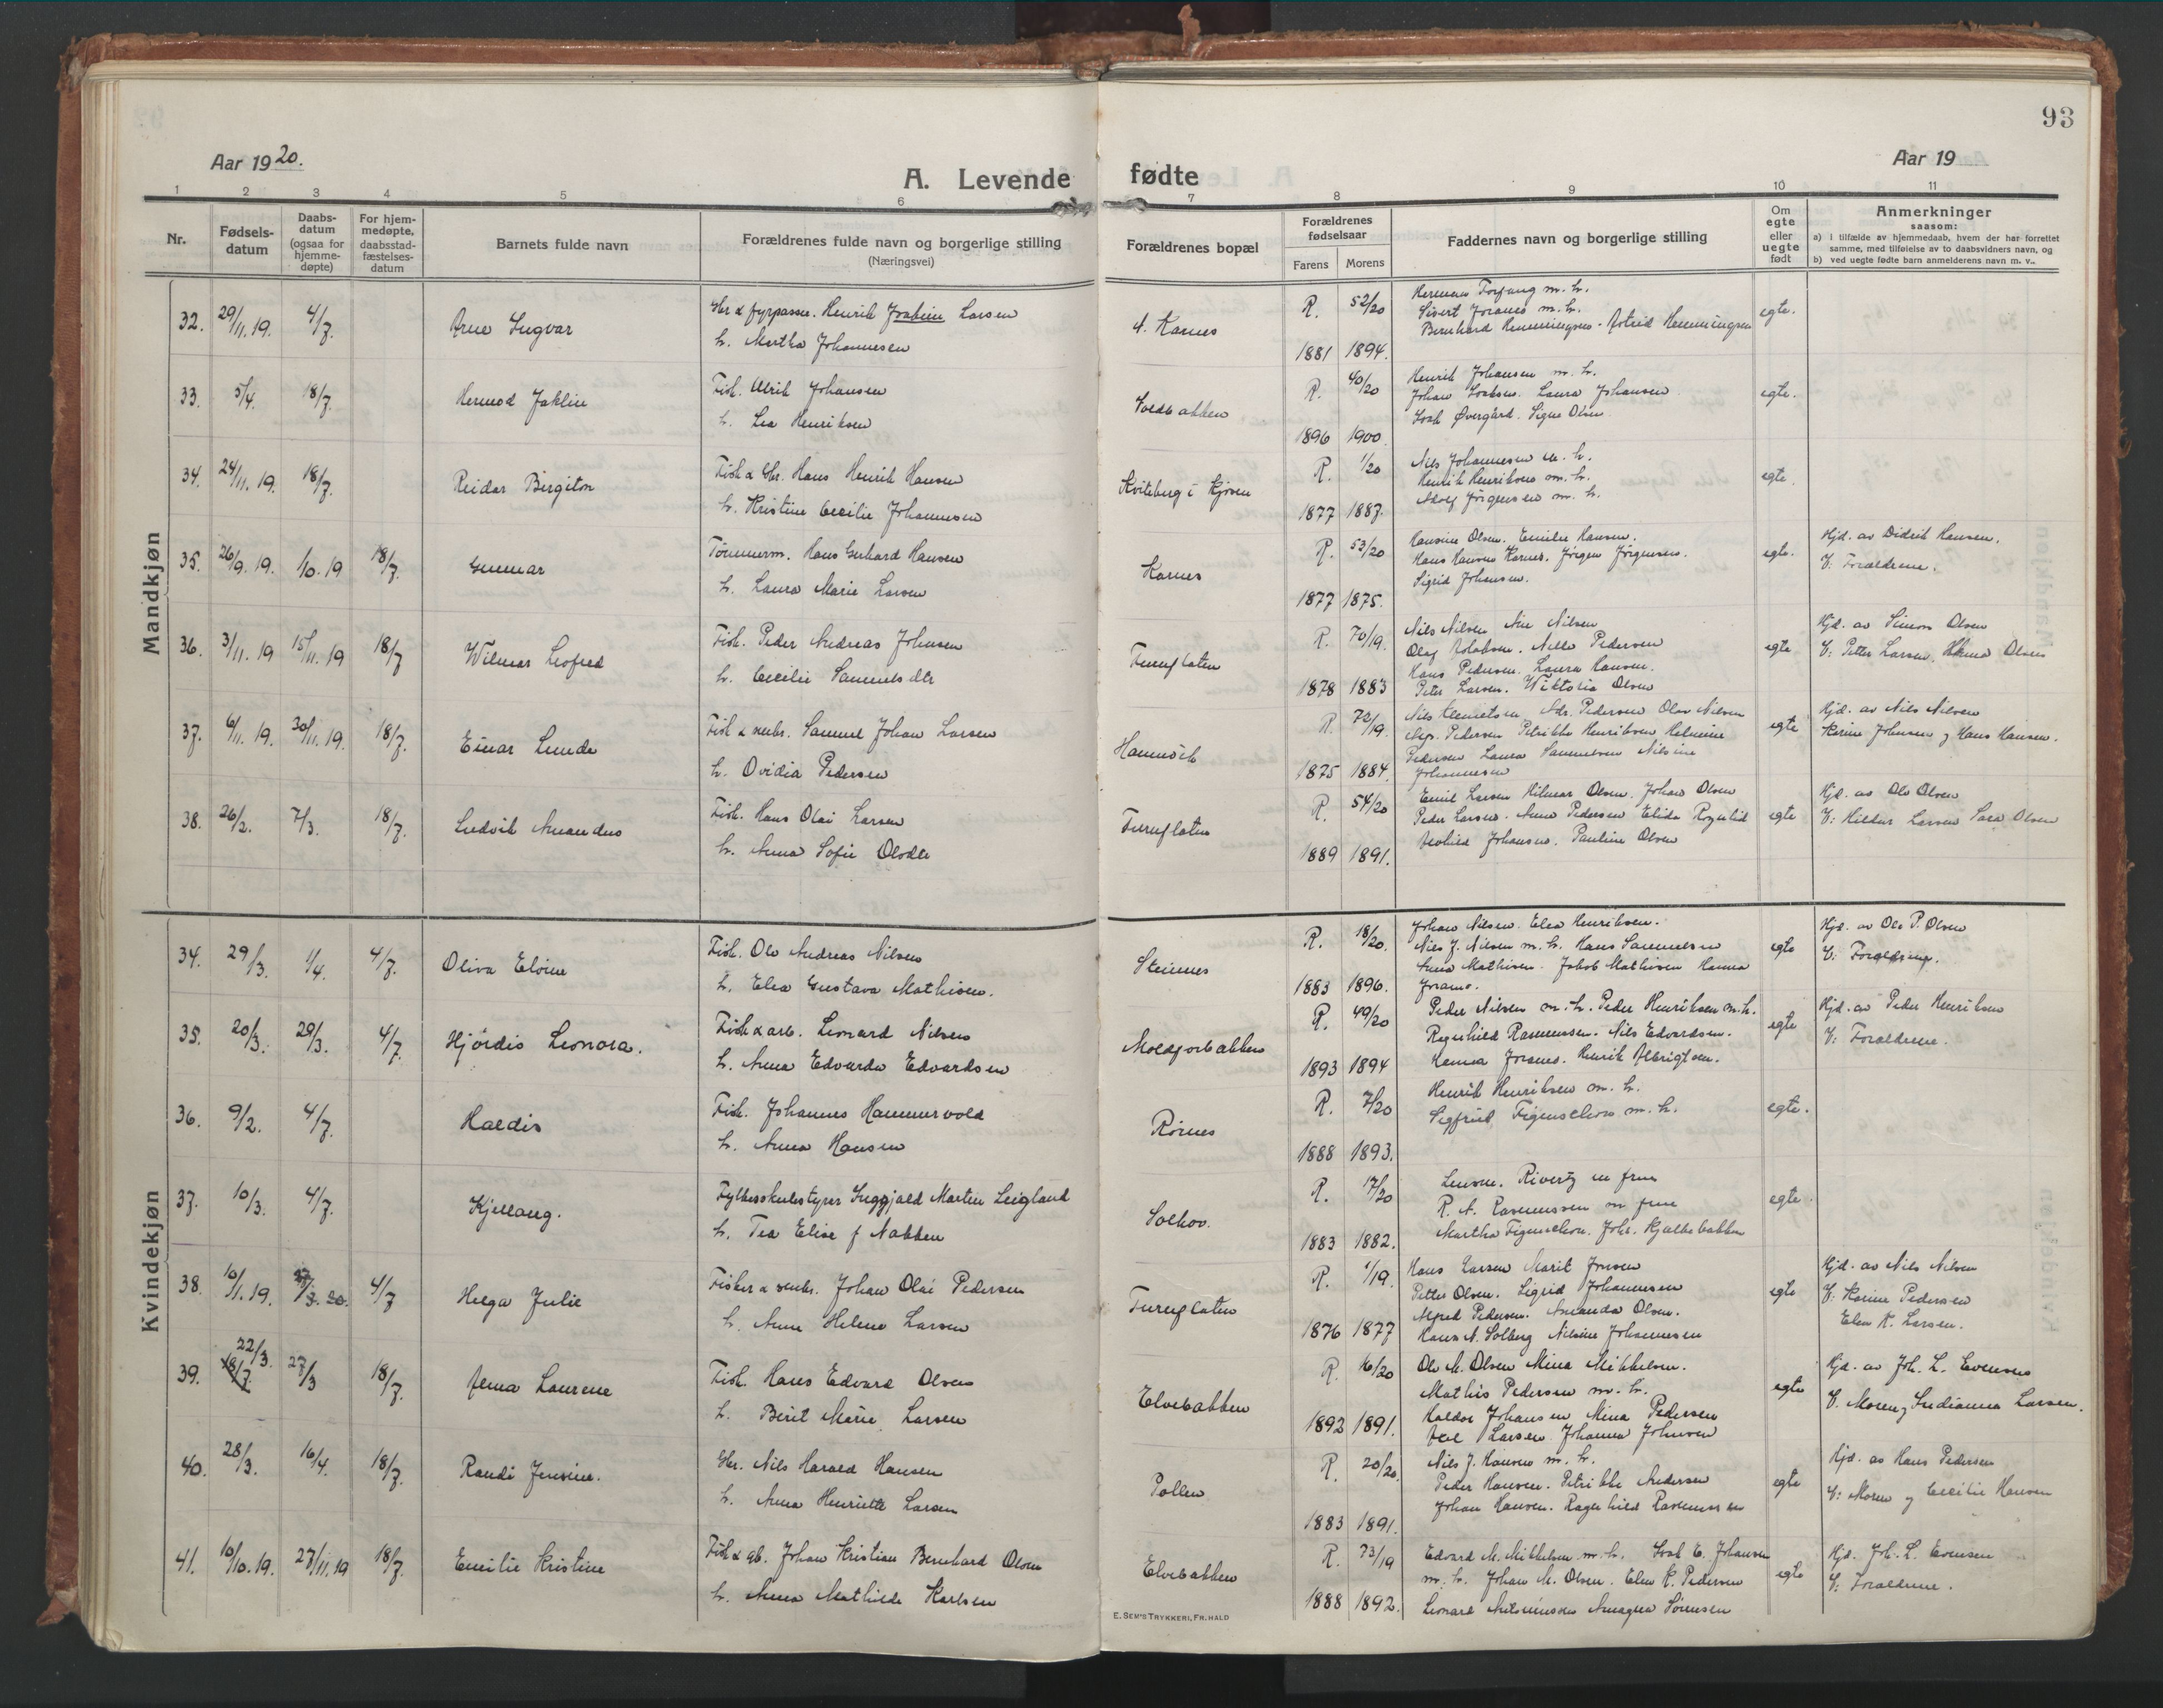 93
Aar 1920.
A. Levende fødte
Aar 19
1 2 3 4 5 6 7 8 9 10 11
Nr.
Fødsels-
datum
Daabs-
datum
(ogsaa for
hjemme-
døpte)
For hjem-
medøpte,
daabsstad-
fæstelses-
datum
Barnets fulde navn
Forældrenes fulde navn og borgerlige stilling
(Næringsvei)
Forældrenes bopæl
Forældrenes
fødselsaar
Farens Morens
Faddernes navn og borgerlige stilling
Om
egte
eller
uegte
født
Anmerkninger
saasom:
a) i tilfælde av hjemmedaab, hvem der har forrettet
samme, med tilføielse av to daabsvidners navn, og
b) ved uegte fødte barn anmelderens navn m. v..
Mandkjøn
32. 29/11. 19. 4/7. Arne Ingvar
Gbr & fyrpasser. Henrik Joakim Larsen
h. Martha Johannesen
Karnes
R. 52/20
1881 1894.
Herman Torfang m. h.
Sivert Joramo m. h.
Bernhard Henningsen. Astrid Henningsen
egte.
33. 5/4. 18/7. Hermod Joklin
Fisk. Ulrik Johansen
h. Lea Henriksen
R. 40/20
1896 1900.
Henrik Johansen m. h.
Johan Isaksen. Laura Johansen
Isak Øvergård. Signe Olsen
egte.
34. 24/11. 19. 18/7. Reidar Birgiton
Fisk & Gbr. Hans Henrik Hansen
h. Kristine Cecilie Johannesen
Kviteberg i Kjosen
R. 1/20
1877 1887.
Nils Johannesen m. h.
Henrik Henriksen m. h.
Adolf Jörgensen m. h.
egte.
35. 26/9. 19. 1/10. 19 18/7. Gunnar
Tömmerm. Hans Gerhard Hansen
h. Laura Marie Larsen
Karnes
R. 53/20
1877 1875.
Hansine Olsen. Emilie Hansen.
Hans Hansen Karnes. Jörgen Jörgensen.
Sigrid Johansen.
egte.
Hjd. av Didrik Hansen.
V: Forældrene.
36. 3/11. 19 15/11. 19 18/7 Wilmar Leofred
Fisk. Peder Andreas Johnsen
h. Cecilie Samuelsdtr
Furuflaten
R. 70/19.
1878 1883
Nils Nilsen Nilsen
Hans Pedersen. Laura Hansen.
Peter Larsen. Wiktoria Olsen
egte
Hjd. av Simon Olsen
V: Petter Larsen, Olsen
37. 6/11. 19. 30/11. 19. 18/7. Einar Lunde
Fisk & Samuel Johan Larsen
h. Ovidia Pedersen
R. 72/19.
1875 1884.
Nils Klemetsen. Pedersen Olav Nilsen
Pedersen Petrikke Henriksen Helmine
Pedersen Laura Samuelsen Nilsine
Johannesen
egte
Hjd. av Nils Nilsen
Karine Johnsen og Hans Hansen.
38. 26/2. 7/3. 18/7. Ludvik Amandus
Fisk. Hans Olai Larsen
h. Anna Sofie Olsdtr
Furuflaten
R. 54/20
1889 1891.
Emil Larsen Hilmar Olsen. Johan Olsen
Peder Larsen. Anna Pedersen Elida
Johansen. Pauline Olsen
egte
Hjd. av Ole Olsen
V: Hildur Larsen Sara Olsen
Kvindekjøn
34. 29/3. 1/4. 4/7. Oliva Eloine
Fisk. Ole Andreas Nilsen
h. Elea Gustava Mathisen.
Steinnes
R. 18/20.
1883 1896.
Johan Nilsen. Elea Henriksen.
Nils J. Nilsen m. h. Hans Samuelsen
Anna Mathisen. Jakob Mathisen Hanna
Joramo.
egte
Hjd. av Ole P. Olsen
V: Forældrene.
35. 20/3. 29/3. 4/7. Hjördis Leonora.
Fisk & arb. Leonard Nilsen
h. Anna Edvarda Edvardsen
R. 49/20
1893 1894
Peder Nilsen m. h. Peder Henriksen m. h.
Ragnhild Rasmussen. Nils Edvardsen.
Hanna Joramo. Henrik Albrigtsen.
egte
Hjd. av Peder Henriksen
V: Forældrene.
36. 9/2. 4/7. Haldis
Fisk. Johannes Hammervold
h. Anna Hansen
Rörnes
R. 7/20
1888 1893.
Henrik Henriksen m. h.
Sigfrid Figenschou m. h.
egte.
37. 10/3. 4/7. Kjellaug.
Fylkesskulestyrer Inggjald Martin Leigland
h. Tea Elise f Nakken
Solhov.
R. 17/20
1883 1882.
Lensm. Rivertz m frue
R. A. Rasmussen m frue
Martha Figenschou. Johs. Hjælbebakken
egte
38. 10/11. 19. 4/7 Helga Julie
Fisker & Johan Olai Pedersen
h. Anne Helene Larsen
Furuflaten
R. 1/19.
1876 1877
Hans Larsen Marit Jensen
Petter Olsen. Sigrid Johannesen
Alfred Pedersen. Amanda Olsen.
Hans N. Solberg Nilsine Johannesen
egte
Hjd. av Nils Nilsen
V: Karine Pedersen
Elen K. Larsen.
39. 22/3. 27/3 18/7. Anna Laurene
Fisk. Hans Edvard Olsen
h. Berit Marie Larsen
Elvebakken
R. 16/20
1892 1891.
Ole M. Olsen Mina Mikkelsen.
Mathis Pedersen m. h.
Haldor Johansen Mina Pedersen
Larsen. Johanna Johnsen
egte
Hjd. av Joh. L. Evensen
V. Moren og Indianna Larsen.
40. 28/3. 16/4. 18/7. Randi Jensine.
Gbr. Nils Harald Hansen
h. Anna Henriette Larsen
Pollen
R. 20/20.
1883 1891.
Nils J. Hansen m. h.
Peder Hansen. Petrikke Andersen
Johan Hansen. Ragnhild Rasmussen
egte
Hjd. av Hans Pedersen
V: Moren og Cecilie Hansen
41. 10/10. 19. 27/11. 19 18/7. Emilie Kristine
Fisk & gb. Johan Kristian Bernhard Olsen
h. Anna Mathilde Karlsen
Elvebakken
R. 73/19
1888 1892.
Edvard M. Mikkelsen m. h. Isak E. Johansen
m. h. Johan M. Olsen. Elen K. Pedersen
Leonard Antonisen Amagna Sörensen
egte
Hjd. Joh. L. Evensen
V: Forældrene.
E. SEM'S TRYKKERI, FR.HALD